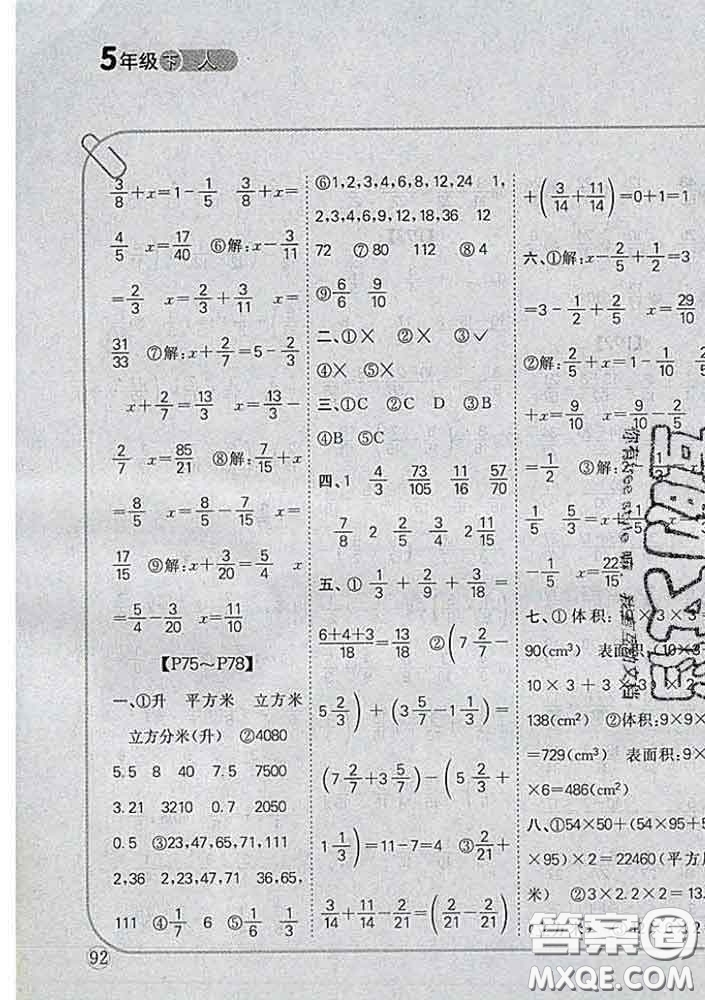 5年级 下 人
3/8+x=1-1/5 3/8+x=
4/5 x=17/40 ⑥解:x-3/11
=2/3 x=2/3+3/11 x=
31/33 ⑦解:x+2/7=5-2/3
x+2/7=13/3 x=13/3-
2/7 x=85/21 ⑧解:7/15+x
=8/5 x=8/5-7/15 x=
17/15 ⑨解:x+3/20=5/4 x
=5/4-3/20 x=11/10
【P75~P78】
一、①升 平方米 立方米
立方分米(升) ②4080
5.5 8 40 7.5 7500
3.21 3210 0.7 2050
0.5 ③23,47,65,71,111
2,36 2,23,47,71 36,65,
111 ④1/7 6 ⑤1/6 1/3
⑥1,2,3,4,6,8,12,24 1,
2,3,4,6,9,12,18,36 12
72 ⑦80 112 ⑧4
⑨6/6 9/10
二、①× ②× ③✓
④× ⑤×
三、①C ②C D ③B
④B ⑤C
四、1 4/3 73/105 11/16 57/70
7/8 2 2/5 2 11/15
五、①1/3+2/9+3/18=
6+4+3/18=13/18 ②(7 2/7-
5 2/3)+(3 5/7-1 1/3)=
(7 2/7+3 5/7)-(5 2/3+
1 1/3)=11-7=4 ③2/21+
3/14+11/14-2/21=(2/21-2/21)
+(3/14+11/14)=0+1=1
六、①解:x-2/5+1/2=3
=3-1/2+2/5 x=29/10
②解:2/5+x=1-1/10
+x=9/10 x=9/10-2/5
=1/2 ③解:
1/5 5/3
-1/5 x=22/15
七、①体积:10×3×3
90(cm³) 表面积:10×3
10×3+3×
138(cm²) ②体积:9×9×
=729(cm³) 表面积:9×9
×6=486(cm²)
八、①54×50+(54×95+5
×95)×2=22460(平方
米) ②3×2.2×2=
92
你有free style嘛
答案圈
MXQE.COM